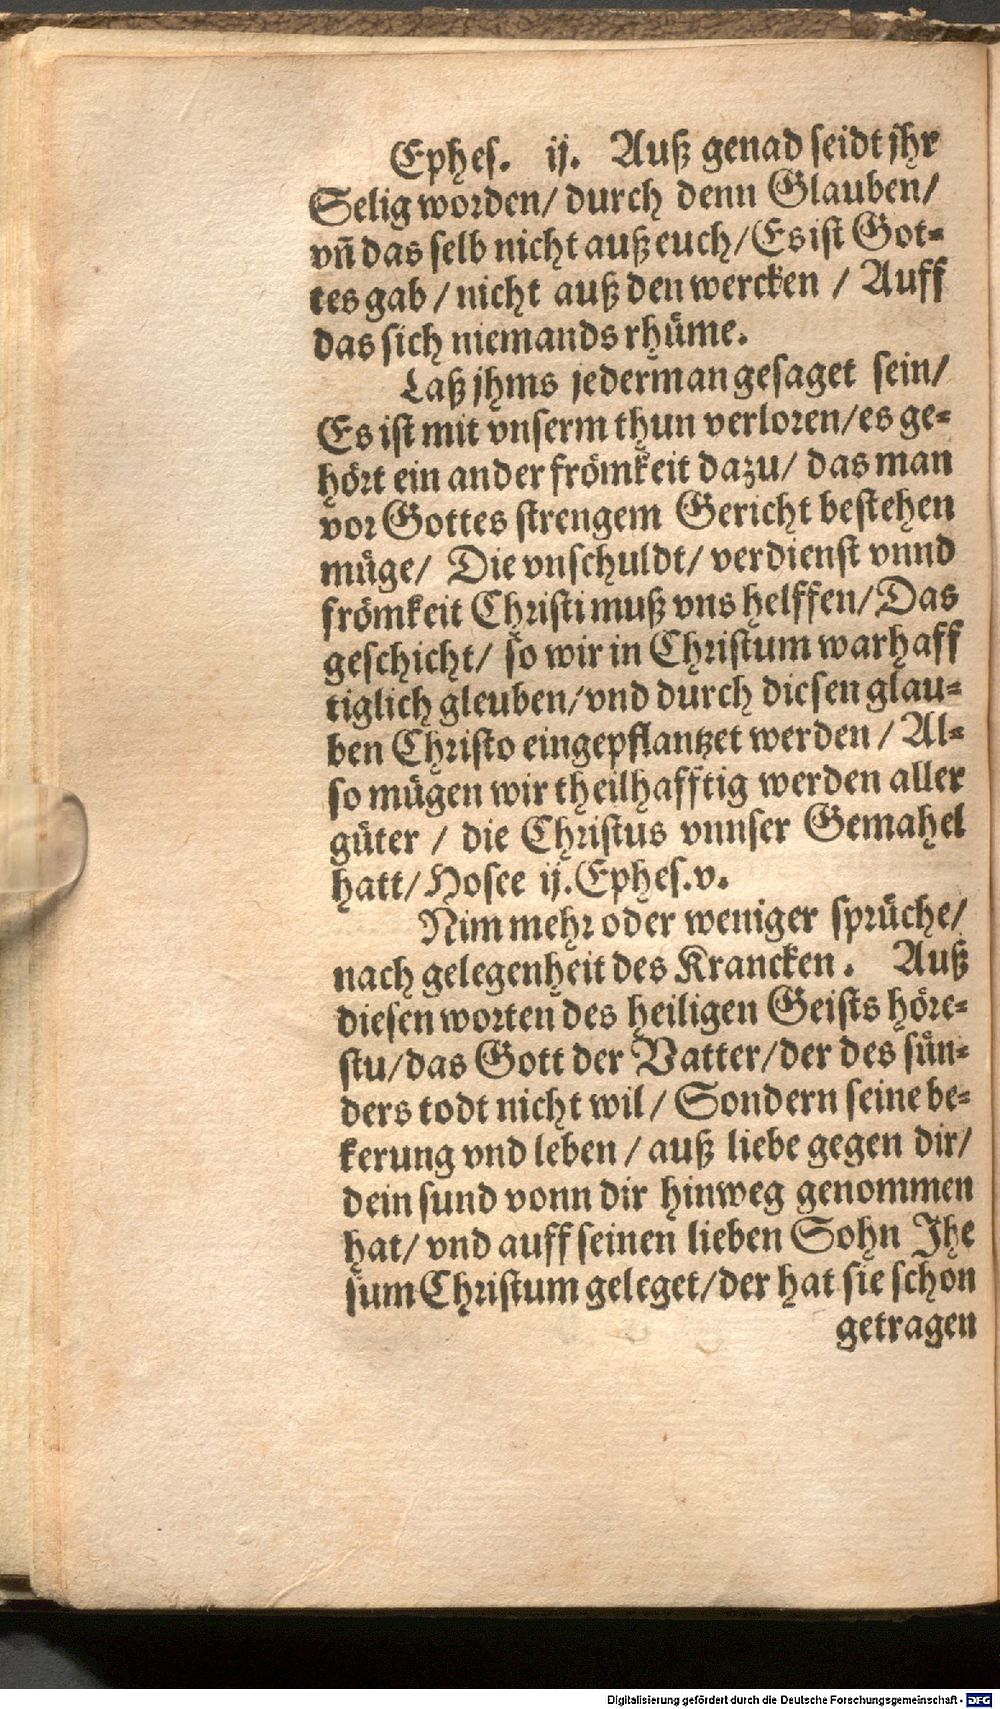 Ephes. ij. Auß genad seidt jhr
Selig worden/ durch denn Glauben/
vñ das selb nicht auß euch/ Es ist Got-
tes gab / nicht auß den wercken / Auff
das sich niemands rhüme.
Laß jhms jederman gesaget sein/
Es ist mit vnserm thun verloren/ es ge-
hört ein ander frömkeit dazu/ das man
vor Gottes strengem Gericht bestehen
müge/ Die vnschuldt/ verdienst vnnd
frömkeit Christi muß vns helffen/ Das
geschicht/ so wir in Christum warhaff
tiglich gleuben/ vnd durch diesen glau-
ben Christo eingepflantzet werden / Al-
so mügen wir theilhafftig werden aller
güter / die Christus vnnser Gemahel
hatt/ Hosee ij. Ephes. v.
Nim mehr oder weniger sprüche/
nach gelegenheit des Krancken. Auß
diesen worten des heiligen Geists höre-
stu/ das Gott der Vatter/ der des sün-
ders todt nicht wil/ Sondern seine be-
kerung vnd leben / auß liebe gegen dir/
dein sund vonn dir hinweg genommen
hat/ vnd auff seinen lieben Sohn Jhe
sum Christum geleget/ der hat sie schon
getragen
Digitalisierung gefördert durch die Deutsche Forschungsgemeinschaft - DFG